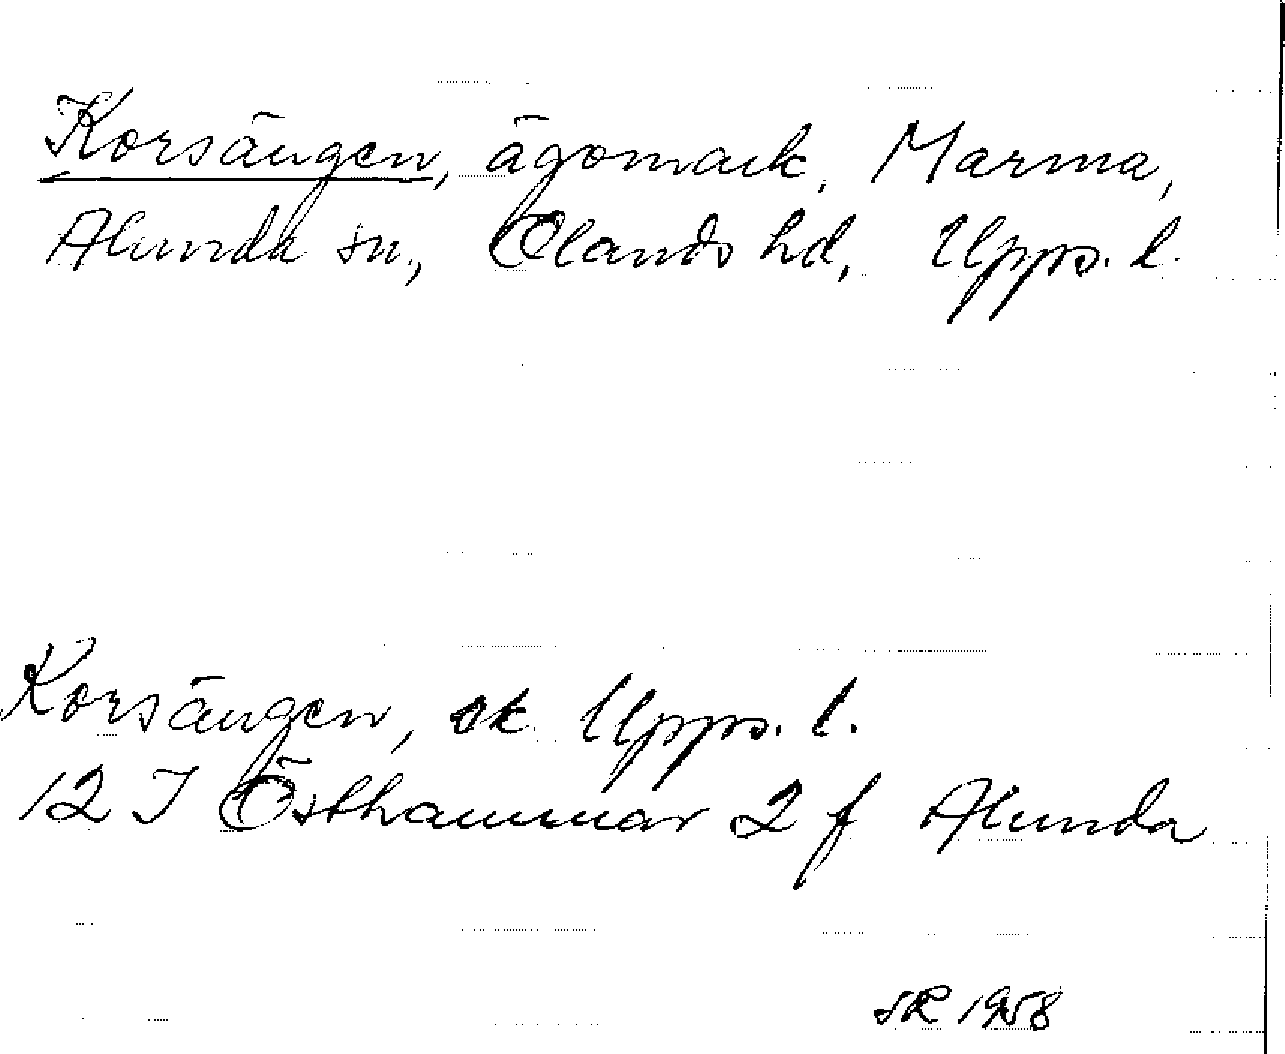 Korsängen, ägomark, Marma,
Alunda sn., Olands hd, Upps. l.
Korsängen, ek. Upps. l.
12 I Östhammar 2 f Alunda
SR 1958